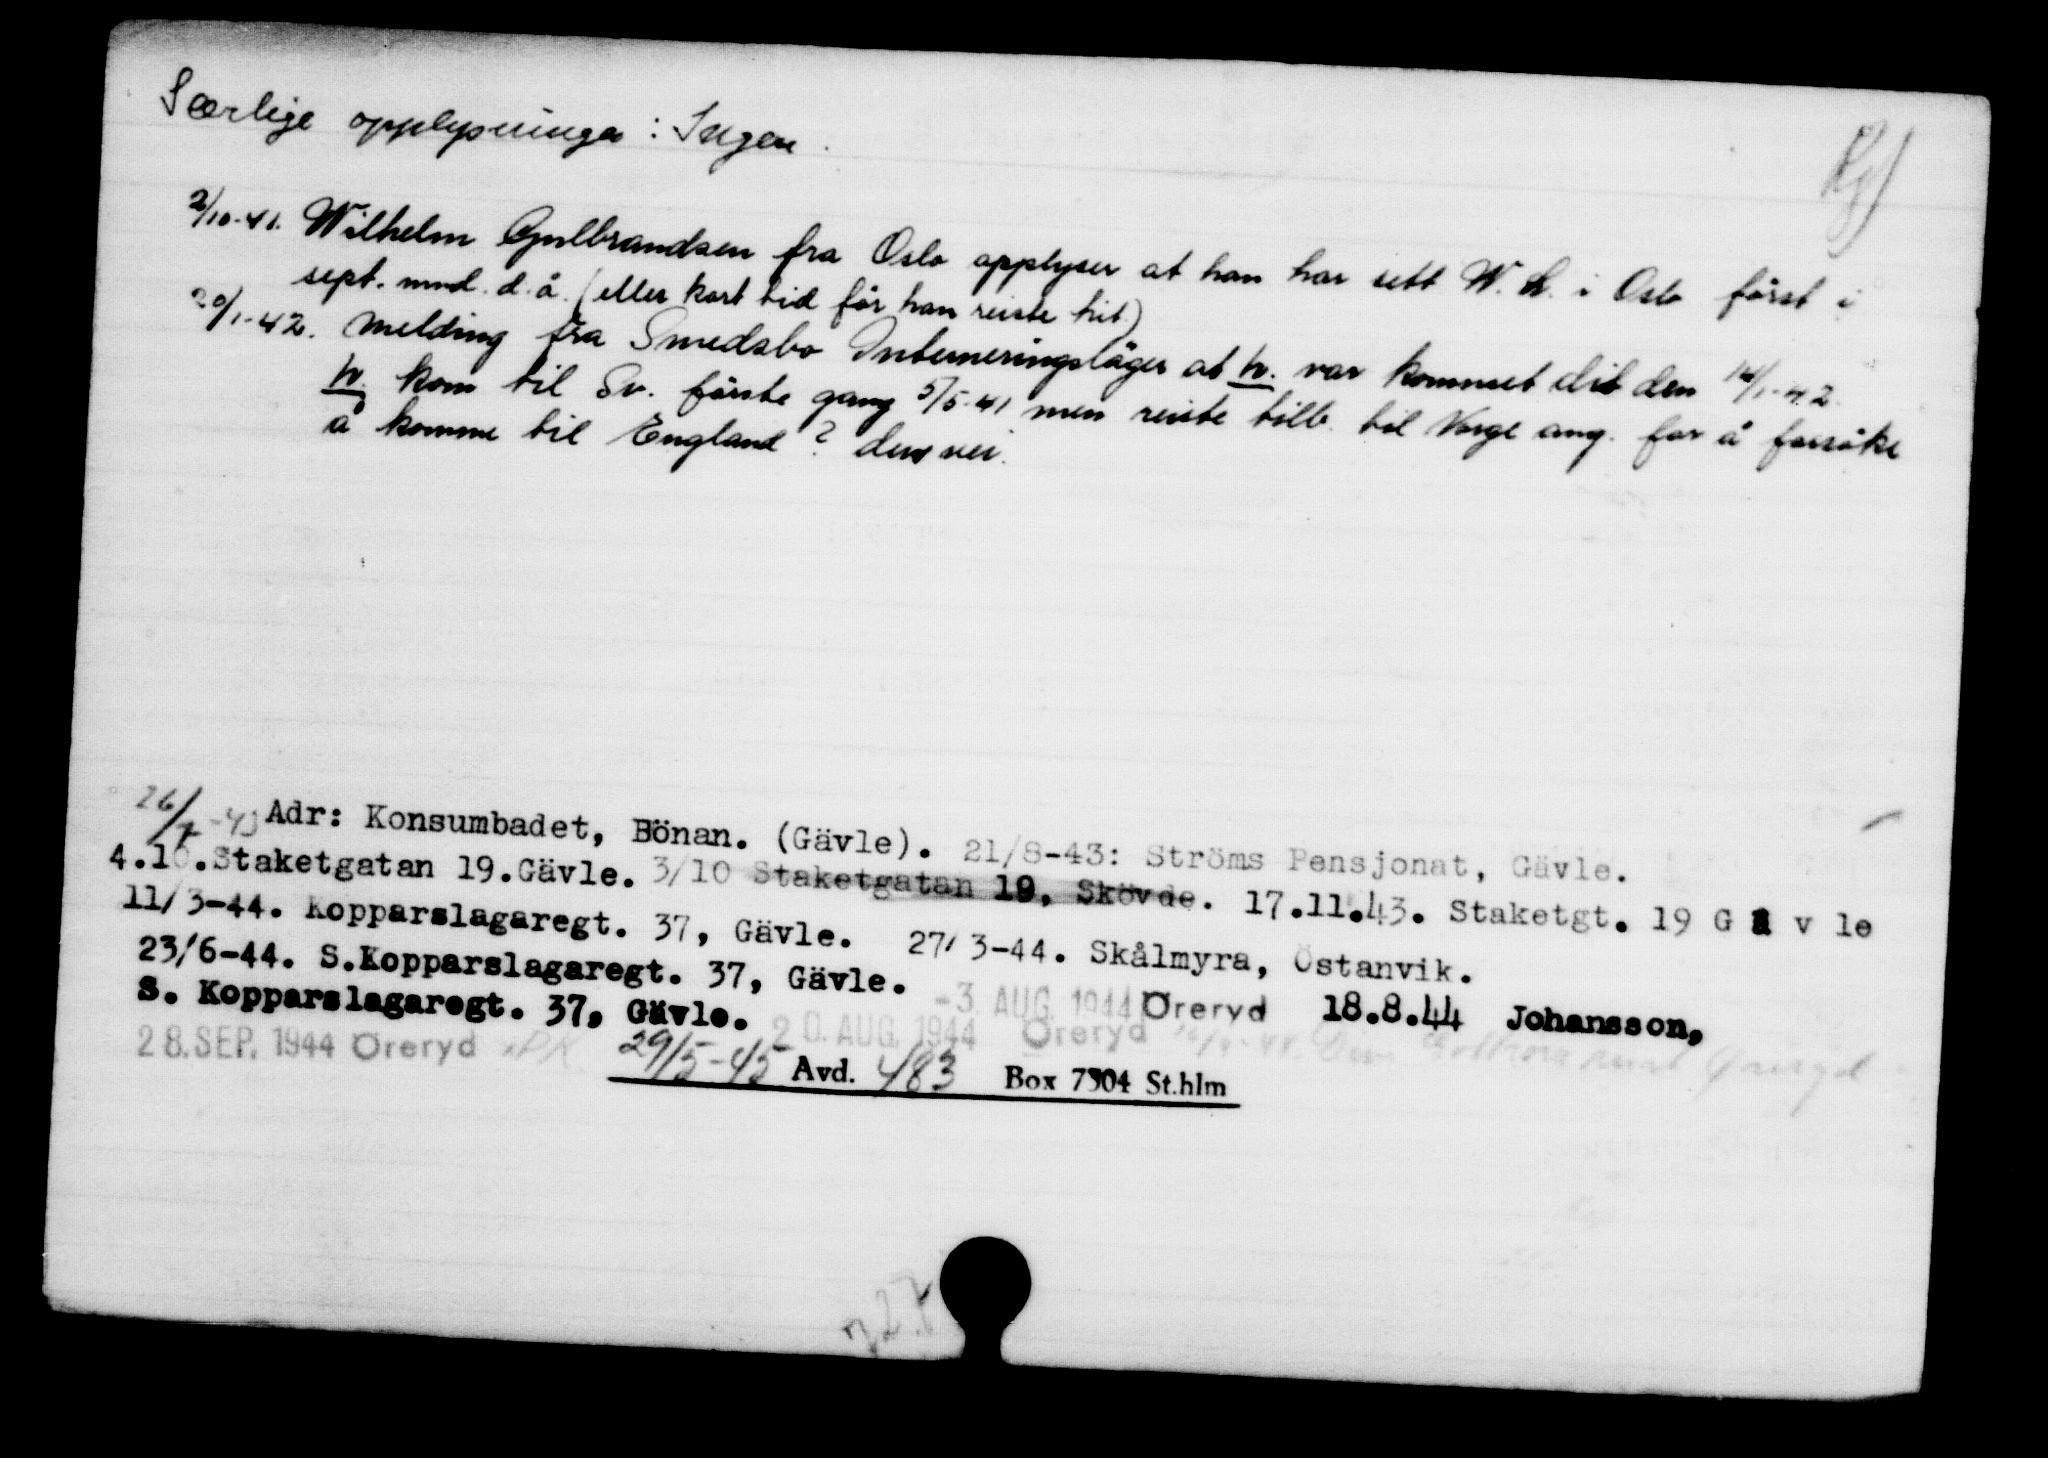 Særlige opplysninger : Ingen.
2/10-41. Wilhelm Gulbrandsen fra Oslo opplyser at han har sett W. H. i Oslo först i
sept. mnd. d.å. (eller kort tid för han reiste hit)
20/1-42. melding fra Smedsbo Interneringsläger at W. var kommet dit den 14/1-42.
W. kom til Sv. förste gang 5/5-41 men reiste tilb. til Norge ang. for å forsöke
å komme til England ? den vei.
26/7-43 Adr: Konsumbadet, Bönan. (Gävle). 21/8-43: Ströms Pensjonat, Gävle.
4.10. Staketgatan 19. Gävle. 3/10 Staketgatan 19, Skövde. 17.11.43. Staketgt. 19 G ä v le
11/3-44. Kopparslagaregt. 37, Gävle. 27/3-44. Skålmyra, Östanvik.
23/6-44. S.Kopparslagaregt. 37, Gävle. -3 AUG. 1944 Öreryd 18.8.44 Johansson,
S. Kopparslagaregt. 37, Gävle. 20. AUG. 1944 Öreryd
28. SEP. 1944 Öreryd 29/5-45 Avd. 483 Box 7304 St.hlm
227